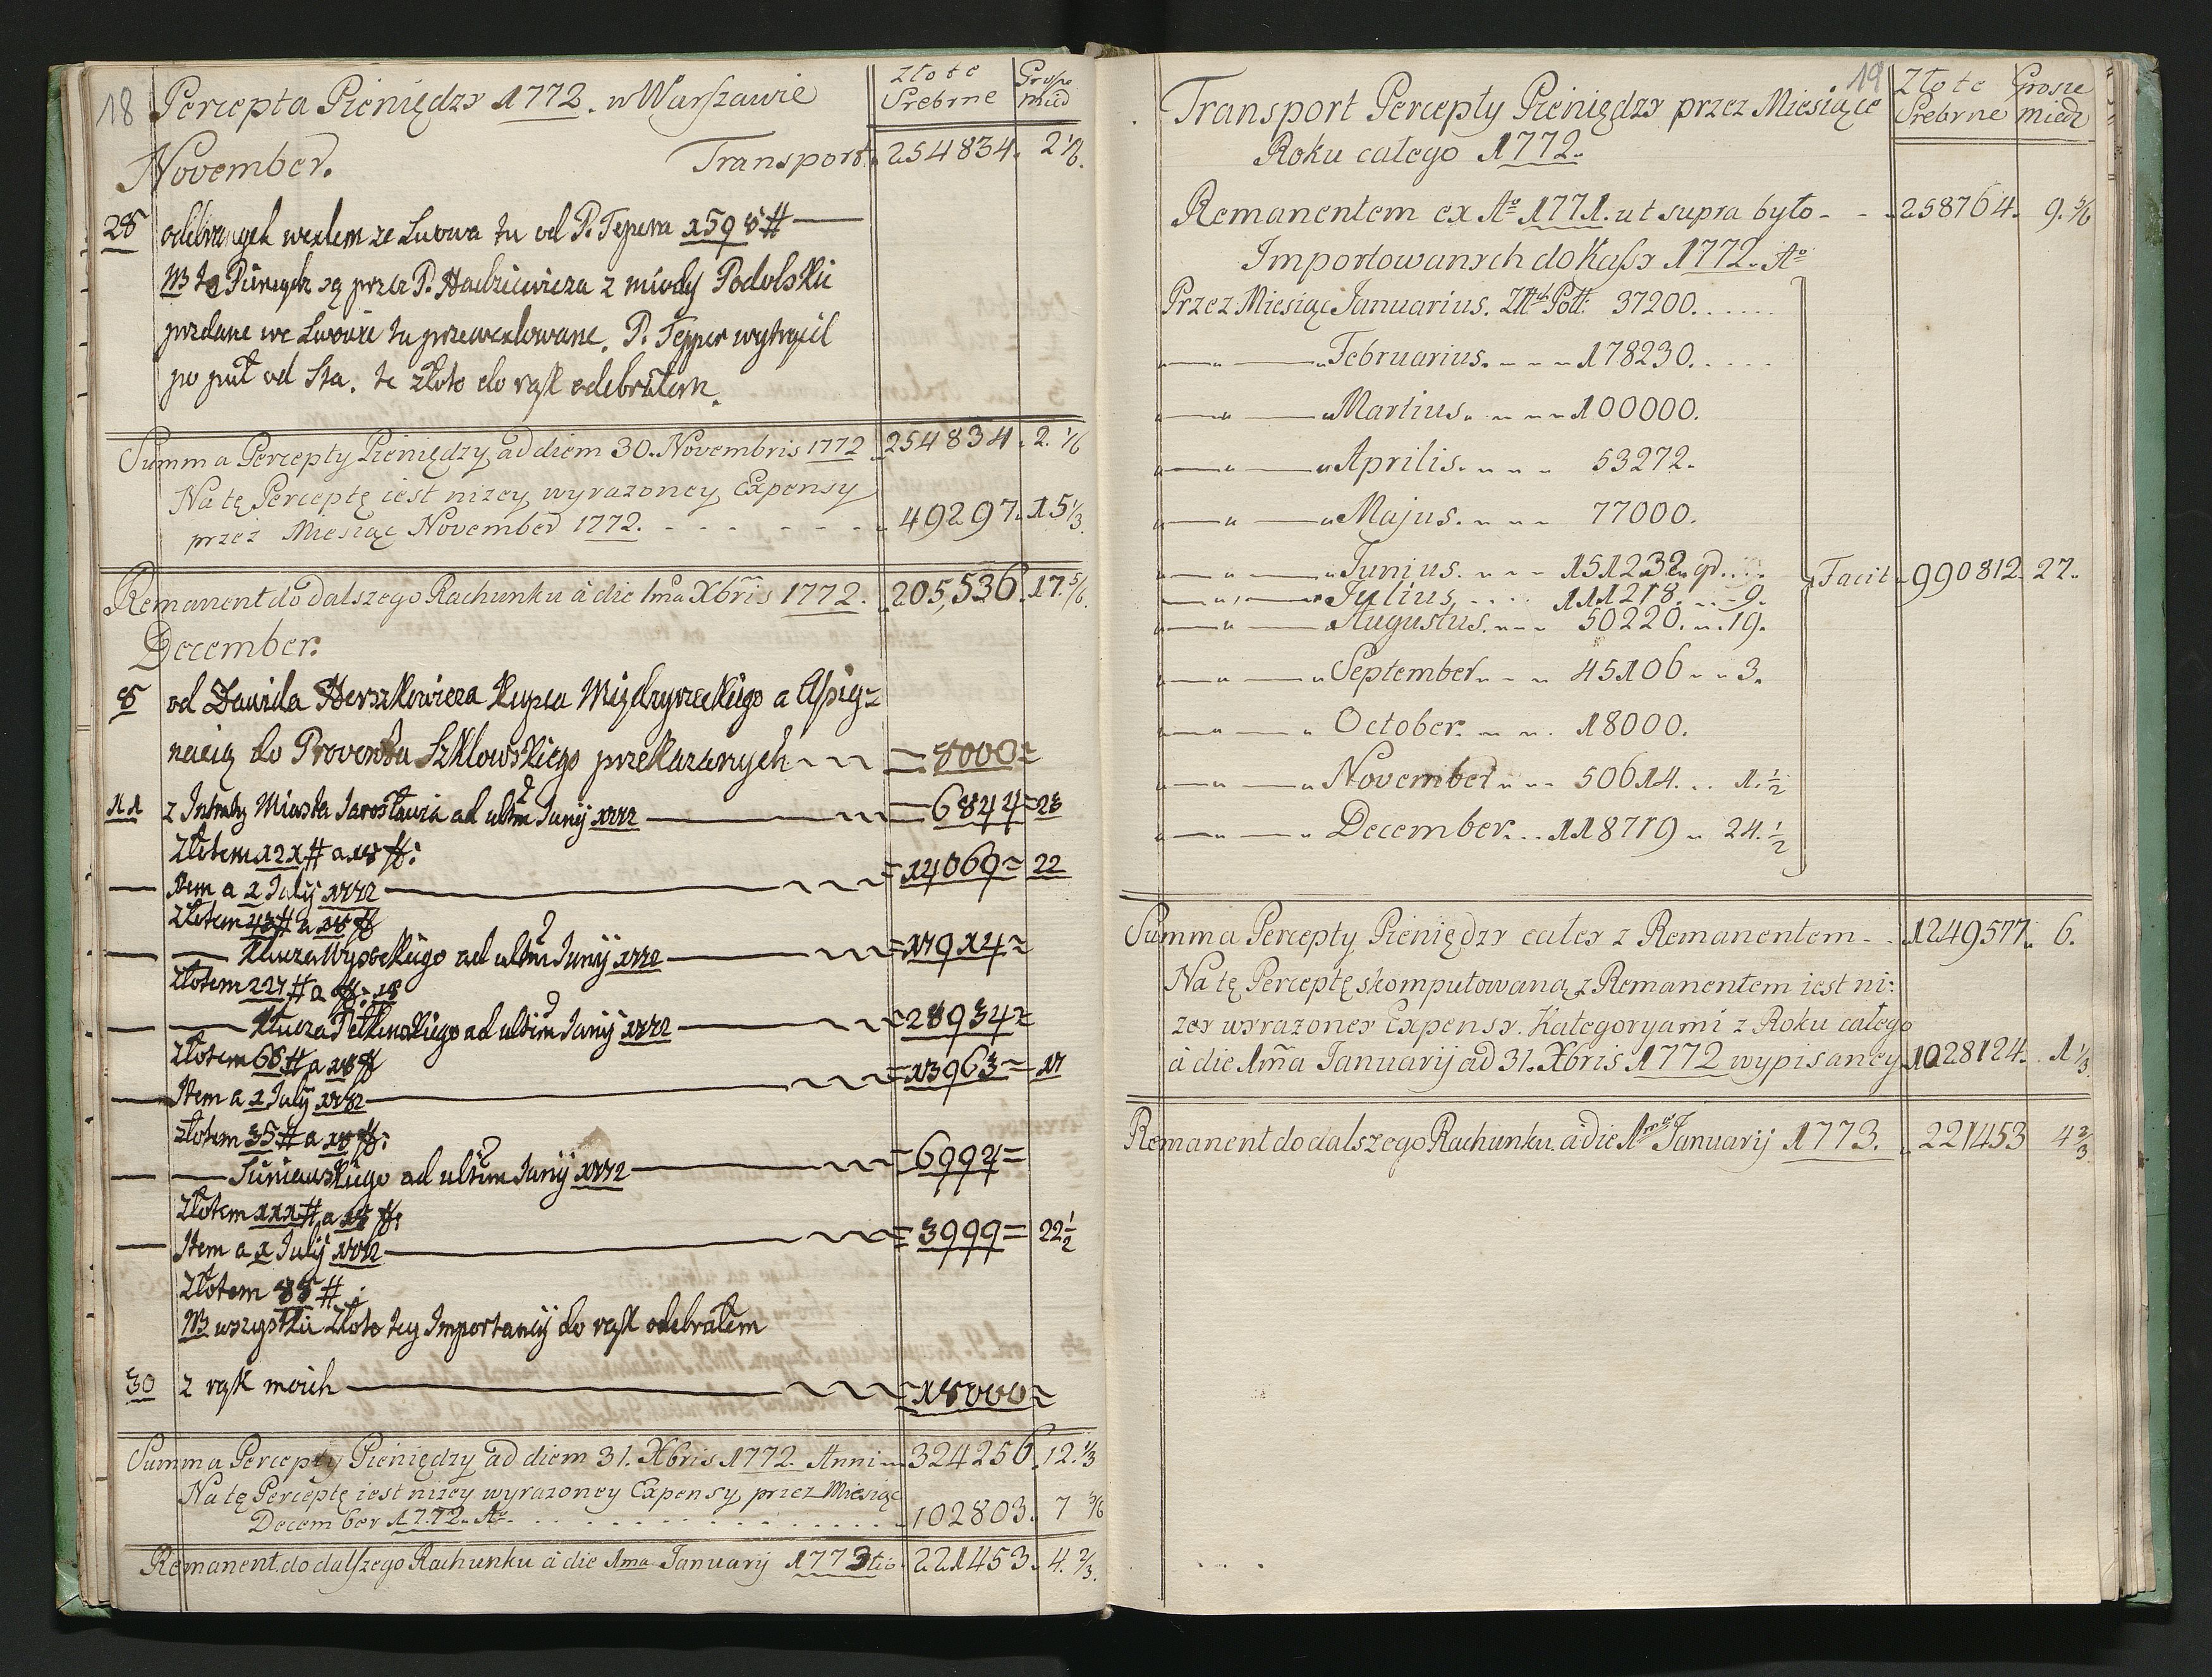 18 Percepta Pieniędzy 1772. w Warszawie
Złote Srebrne
Grosze mied
November. Transport. 254834. 2 1/6.
28 odebranych wexlem ze Lwowa tu od P. Tepera 1598 #
NB te Pieniądz są przez P. Hadziewicza z miody Podolskie
przedane we Lwowie tu przewexlowane. P. Tepper wytrącił
po puł od Sta. te złoto do rąk odebrałem.
Summa Percepty Pieniędzy ad diem 30. Novembris 1772 254834. 2. 1/6
Na tę Perceptę iest nizey wyrazoney Expensy
przez Miesiąc November 1772. 49297. 15 1/3.
Remanent do dalszego Rachunku à die 1ma Xbris 1772. 205,536. 17. 5/6.
December.
8 od Dawida Herszkowicza Kupca Międzyrzeckiego a Assig=
nacią do Proventu Szklowskiego przekazanych = 8000 =
11 z Intraty Miasta Jarosławia ad ultim Junij 1772 6844 = 23
Złotem 121 # a 18 ff:
Item a 1 Julij 1772 = 14069 = 22
Złotem 43 # a 18 ff
Klucza Wysockiego ad ultim Junij 1772 = 17914 =
Złotem 227 # a ff: 18
Klucza Pełkinskiego ad ultim Junij 1772 = 28934 =
Złotem 68 # a 18 ff
Item a 1 Julij 1772 = 13963 = 17
Złotem 35 # a 18 ff:
Sieniawskiego ad ultim Junij 1772 = 6994 =
Złotem 111 # a 18 ff:
Item a 1 Julij 1772 = 3999 = 22 1/2
Złotem 88 #.
NB wszystkie Złoto tey Importancij do rąk odebrałem
30 z rąk moich = 18000 =
Summa Percepty Pieniędzy ad diem 31. Xbris 1772. Anni 324256. 12. 1/3
Na tę Perceptę iest nizey wyrazoney Expensy przez Miesiąc
December 1772. Ao. 102803. 7 4/6
Remanent do dalszego Rachunku à die 1ma Januarij 1773tio. 221453. 4. 2/3.
19
Transport Percepty Pieniędzy przez Miesiące
Roku całego 1772.
Złote Srebrne
Grosze miedz
Remanentem ex Ao 1771. ut supra było - - 258764. 9. 5/6
Importowanych do Kassy 1772. Ao
Przez Miesiąc Januarius. Złth Poll: 37200.
" " Februarius. 178230.
" " Martius. 100000.
" " Aprilis. 53272.
" " Majus. 77000.
" " Junius. 151232. gr.
" " Julius. 111218. 9.
" " Augustus. 50220. 19.
Facit 990812. 27.
" " September. 45106 3.
" " October. 18000.
" " November 50614. 1. 1/2
" " December. 118719 24. 1/2
Summa Percepty Pieniędzy całey z Remanentem 1249577. 6.
Na tę Perceptę skomputowaną z Remanentem iest ni:
zey wyrazoney Expensy. Kategoryami z Roku całego
à die 1ma Januarij ad 31. Xbris 1772 wypisaney 1028124. 1 1/3.
Remanent do dalszego Rachunku. à die 1ma Januarij 1773. 221453 4 2/3.